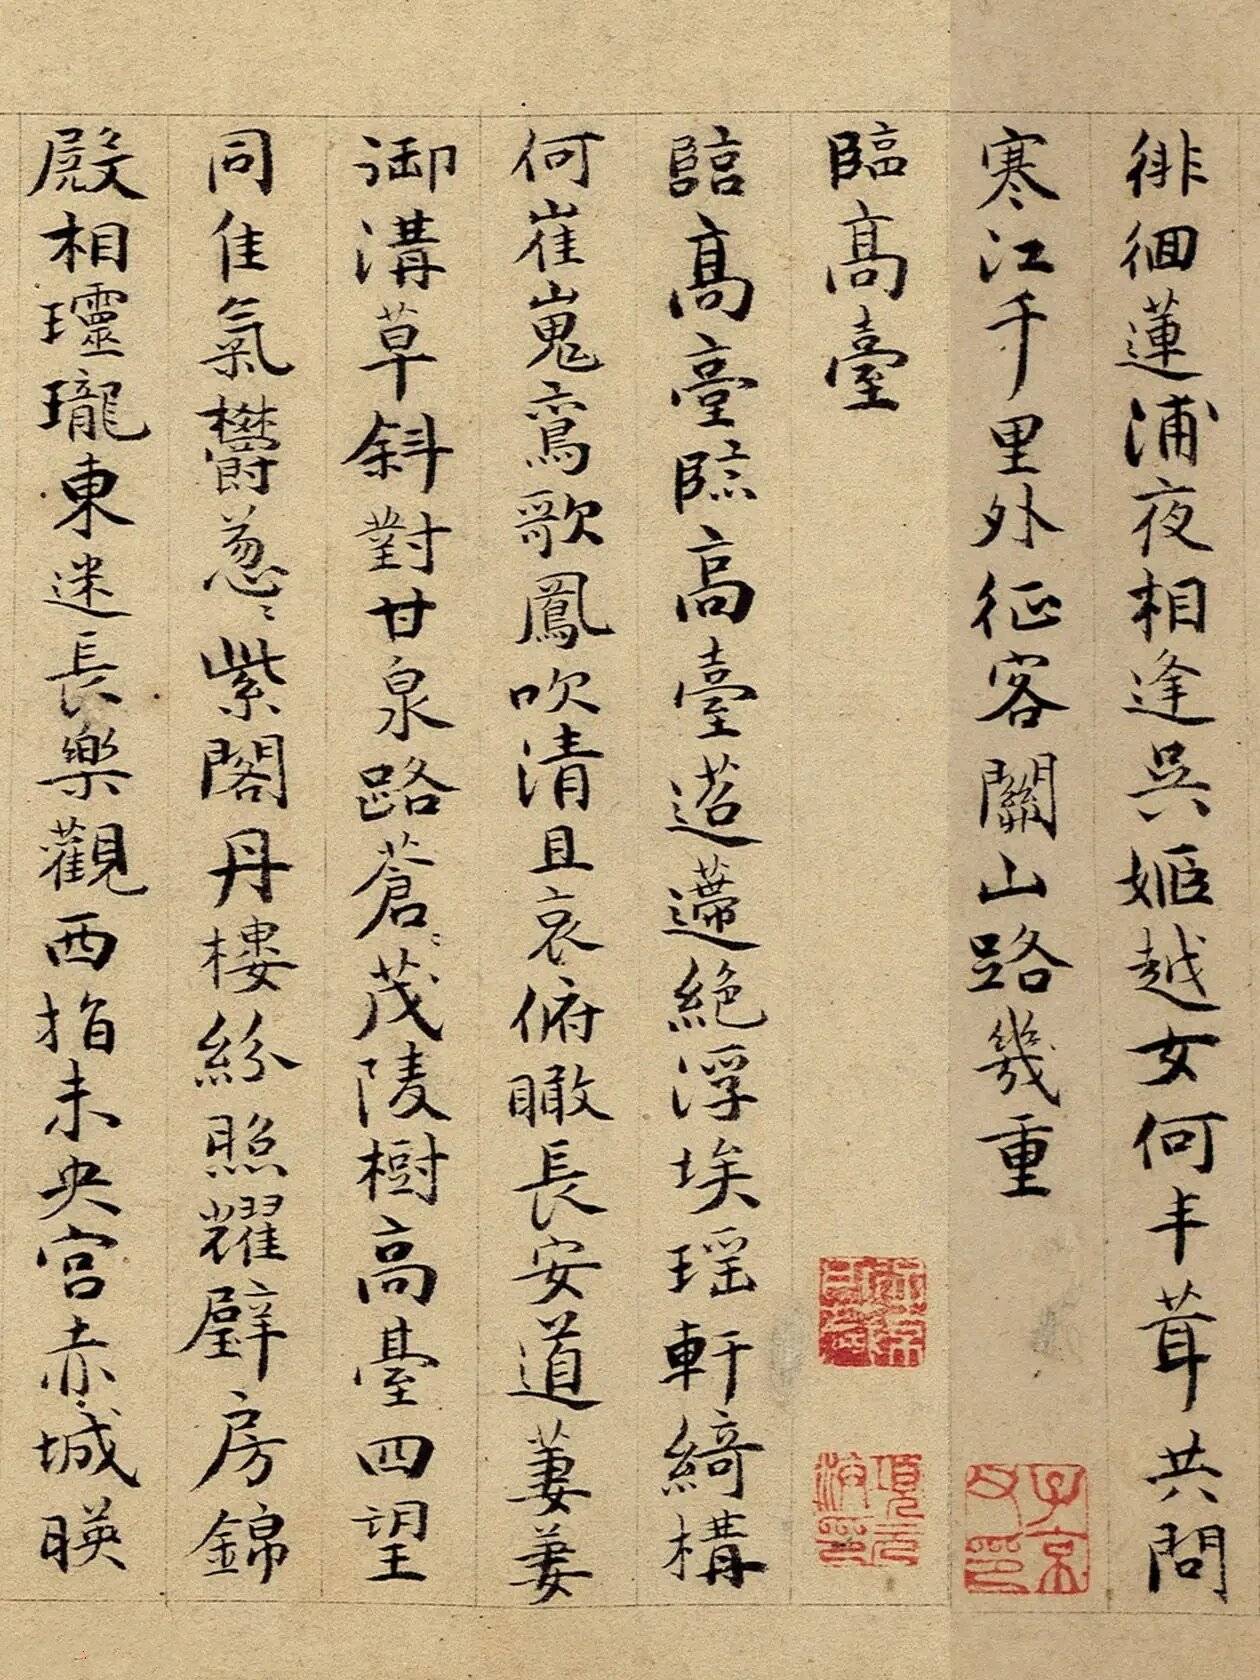 徘徊蓮浦夜相逢吳姬越女何丰茸共問
寒江千里外征客關山路幾重
臨高臺
臨高臺臨高臺迢遰絕浮埃瑶軒綺構
何崔嵬鸞歌鳳吹清且哀俯瞰長安道萋萋
御溝草斜對甘泉路蒼〻茂陵樹高臺四望
同佳氣鬱葱〻紫閣丹樓紛照耀璧房錦
殿相瓏瓏東迷長樂觀西指未央宮赤城映
項元汴印
子京父印